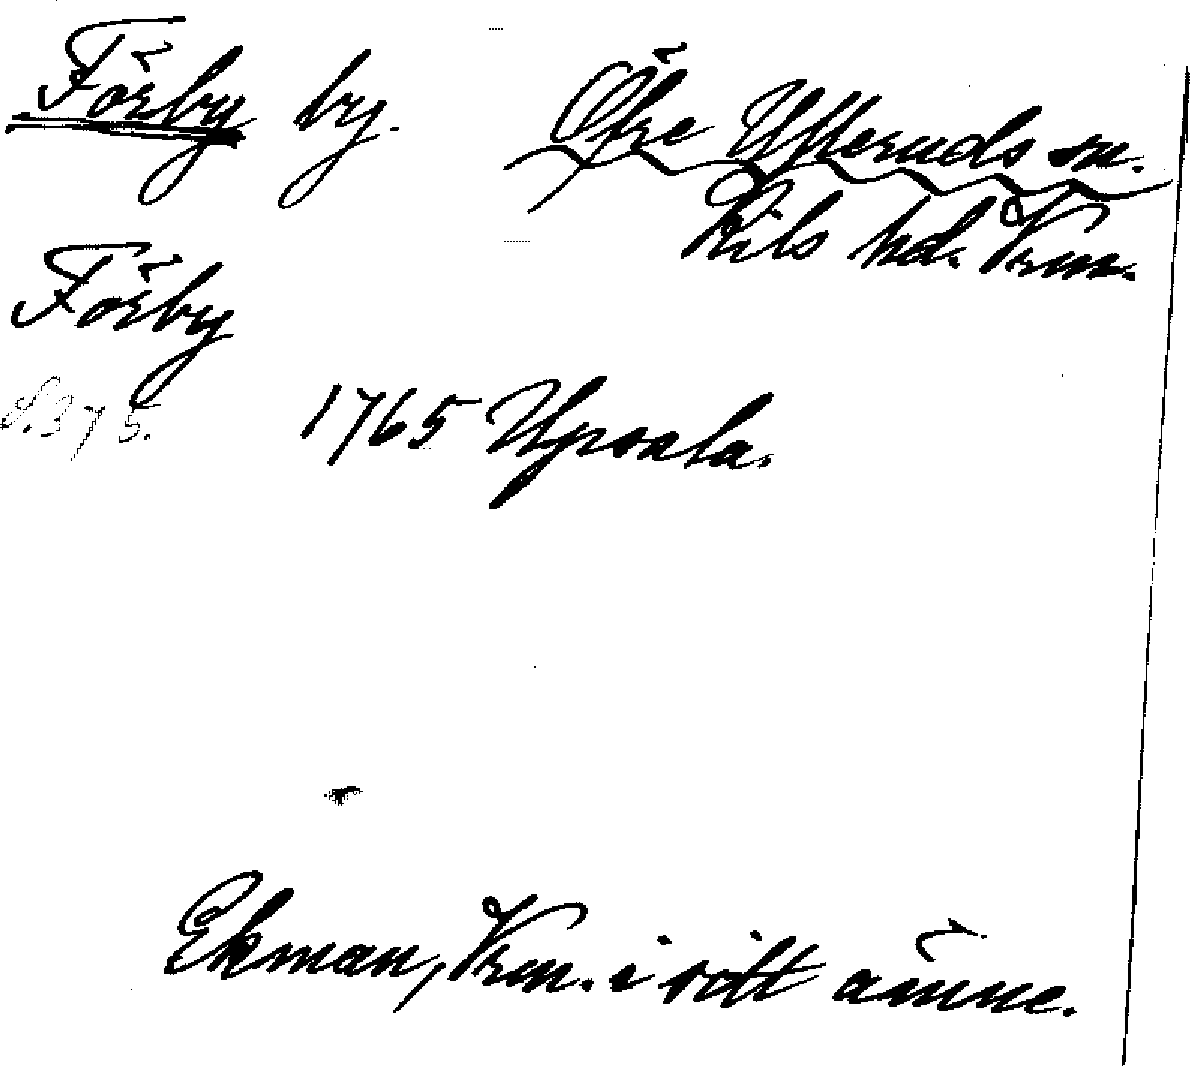 Förby by. Öfre Ulleruds sn.
Kils hd. Vrm.
Förby
S. 375. 1765 Upsala.
Ekman, Vrm. i sitt ämne.